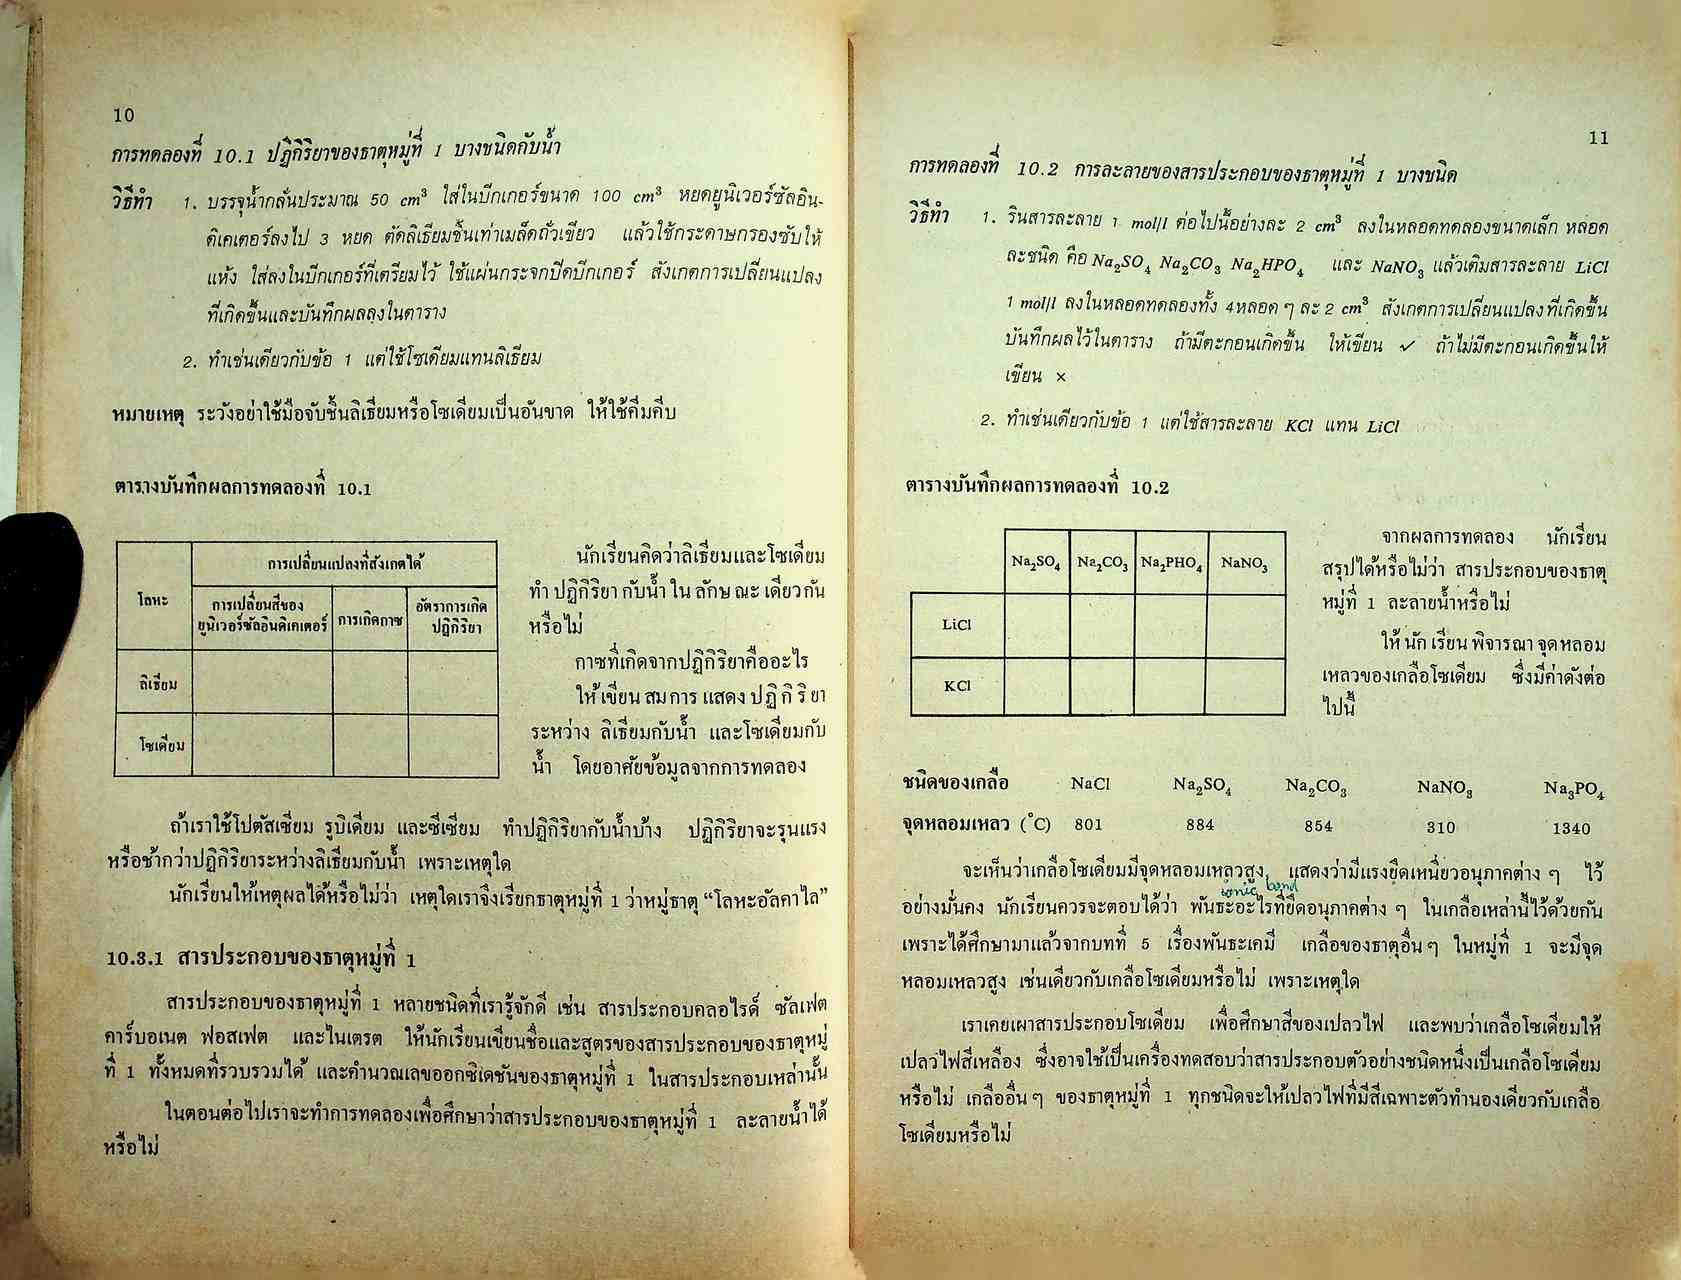 10
การทดลองที่ 10.1 ปฏิกิริยาของธาตุหมู่ที่ 1 บางชนิดกับน้ำ
วิธีทำ 1. บรรจุน้ำกลั่นประมาณ 50 cm³ ใส่ในบีกเกอร์ขนาด 100 cm³ หยดยูนิเวอร์ซัลอิน-
ดิเคเตอร์ลงไป 3 หยด ตัดลิเธียมชิ้นเท่าเมล็ดถั่วเขียว แล้วใช้กระดาษกรองซับให้
แห้ง ใส่ลงในบีกเกอร์ที่เตรียมไว้ ใช้แผ่นกระจกปิดบีกเกอร์ สังเกตการเปลี่ยนแปลง
ที่เกิดขึ้นและบันทึกผลลงในตาราง
2. ทำเช่นเดียวกับข้อ 1 แต่ใช้โซเดียมแทนลิเธียม
หมายเหตุ ระวังอย่าใช้มือจับชิ้นลิเธียมหรือโซเดียมเป็นอันขาด ให้ใช้คีมคีบ
ตารางบันทึกผลการทดลองที่ 10.1
โลหะ
การเปลี่ยนแปลงที่สังเกตได้
การเปลี่ยนสีของ
ยูนิเวอร์ซัลอินดิเคเตอร์
การเกิดกาซ
อัตราการเกิด
ปฏิกิริยา
ลิเธียม
โซเดียม
นักเรียนคิดว่าลิเธียมและโซเดียม
ทำปฏิกิริยากับน้ำในลักษณะเดียวกัน
หรือไม่
กาซที่เกิดจากปฏิกิริยาคืออะไร
ให้เขียนสมการแสดงปฏิกิริยา
ระหว่าง ลิเธียมกับน้ำ และโซเดียมกับ
น้ำ โดยอาศัยข้อมูลจากการทดลอง
ถ้าเราใช้โปตัสเซียม รูบิเดียม และซีเซียม ทำปฏิกิริยากับน้ำบ้าง ปฏิกิริยาจะรุนแรง
หรือช้ากว่าปฏิกิริยาระหว่างลิเธียมกับน้ำ เพราะเหตุใด
นักเรียนให้เหตุผลได้หรือไม่ว่า เหตุใดเราจึงเรียกธาตุหมู่ที่ 1 ว่าหมู่ธาตุ “โลหะอัลคาไล”
10.3.1 สารประกอบของธาตุหมู่ที่ 1
สารประกอบของธาตุหมู่ที่ 1 หลายชนิดที่เรารู้จักดี เช่น สารประกอบคลอไรด์ ซัลเฟต
คาร์บอเนต ฟอสเฟต และไนเตรต ให้นักเรียนเขียนชื่อและสูตรของสารประกอบของธาตุหมู่
ที่ 1 ทั้งหมดที่รวบรวมได้ และคำนวณเลขออกซิเดชันของธาตุหมู่ที่ 1 ในสารประกอบเหล่านั้น
ในตอนต่อไปเราจะทำการทดลองเพื่อศึกษาว่าสารประกอบของธาตุหมู่ที่ 1 ละลายน้ำได้
หรือไม่
11
การทดลองที่ 10.2 การละลายของสารประกอบของธาตุหมู่ที่ 1 บางชนิด
วิธีทำ 1. รินสารละลาย 1 mol/l ต่อไปนี้อย่างละ 2 cm³ ลงในหลอดทดลองขนาดเล็ก หลอด
ละชนิด คือ Na₂SO₄ Na₂CO₃ Na₂HPO₄ และ NaNO₃ แล้วเติมสารละลาย LiCl
1 mol/l ลงในหลอดทดลองทั้ง 4หลอด ๆ ละ 2 cm³ สังเกตการเปลี่ยนแปลงที่เกิดขึ้น
บันทึกผลไว้ในตาราง ถ้ามีตะกอนเกิดขึ้น ให้เขียน ✓ ถ้าไม่มีตะกอนเกิดขึ้นให้
เขียน ×
2. ทำเช่นเดียวกับข้อ 1 แต่ใช้สารละลาย KCl แทน LiCl
ตารางบันทึกผลการทดลองที่ 10.2
Na₂SO₄ Na₂CO₃ Na₂PHO₄ NaNO₃
LiCl
KCl
จากผลการทดลอง นักเรียน
สรุปได้หรือไม่ว่า สารประกอบของธาตุ
หมู่ที่ 1 ละลายน้ำหรือไม่
ให้นักเรียนพิจารณาจุดหลอม
เหลวของเกลือโซเดียม ซึ่งมีค่าดังต่อ
ไปนี้
ชนิดของเกลือ NaCl Na₂SO₄ Na₂CO₃ NaNO₃ Na₃PO₄
จุดหลอมเหลว (°C) 801 884 854 310 1340
จะเห็นว่าเกลือโซเดียมมีจุดหลอมเหลวสูง แสดงว่ามีแรงยึดเหนี่ยวอนุภาคต่าง ๆ ไว้
ionic bond
อย่างมั่นคง นักเรียนควรจะตอบได้ว่า พันธะอะไรที่ยึดอนุภาคต่าง ๆ ในเกลือเหล่านี้ไว้ด้วยกัน
เพราะได้ศึกษามาแล้วจากบทที่ 5 เรื่องพันธะเคมี เกลือของธาตุอื่นๆ ในหมู่ที่ 1 จะมีจุด
หลอมเหลวสูง เช่นเดียวกับเกลือโซเดียมหรือไม่ เพราะเหตุใด
เราเคยเผาสารประกอบโซเดียม เพื่อศึกษาสีของเปลวไฟ และพบว่าเกลือโซเดียมให้
เปลวไฟสีเหลือง ซึ่งอาจใช้เป็นเครื่องทดสอบว่าสารประกอบตัวอย่างชนิดหนึ่งเป็นเกลือโซเดียม
หรือไม่ เกลืออื่นๆ ของธาตุหมู่ที่ 1 ทุกชนิดจะให้เปลวไฟที่มีสีเฉพาะตัวทำนองเดียวกับเกลือ
โซเดียมหรือไม่